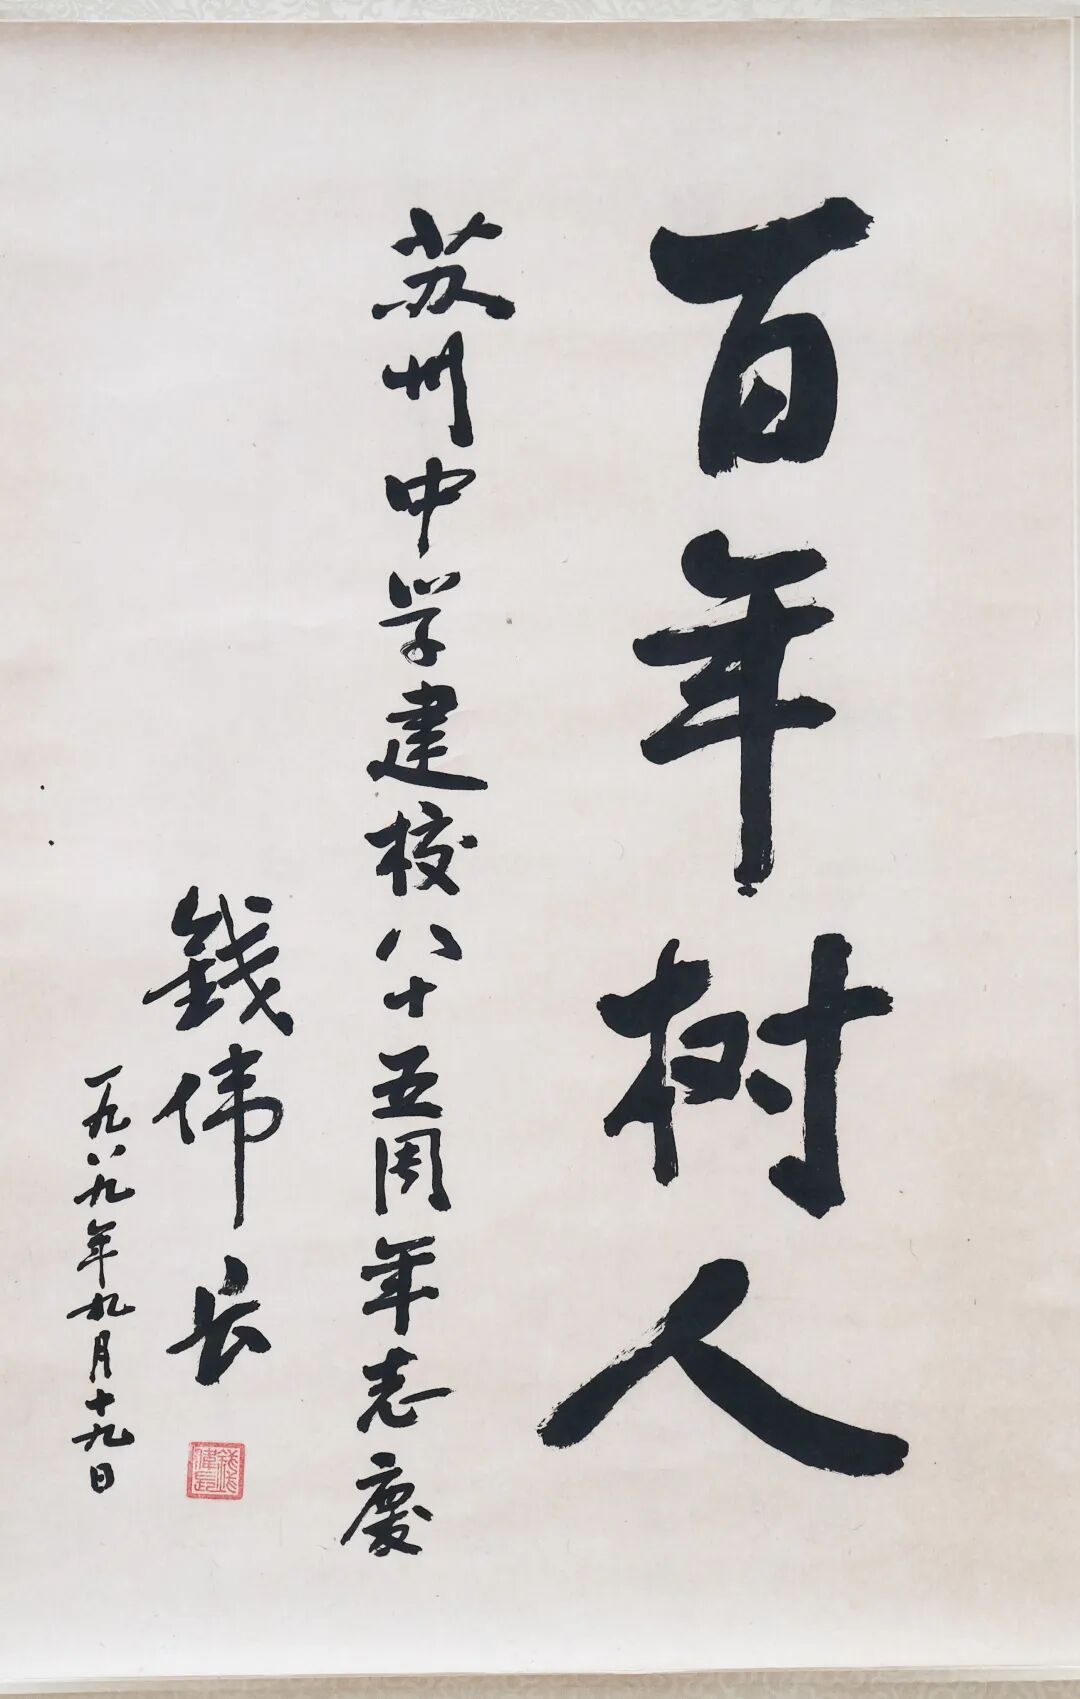 百年树人
苏州中学建校八十五周年志慶
錢伟长
一九八九年九月十九日